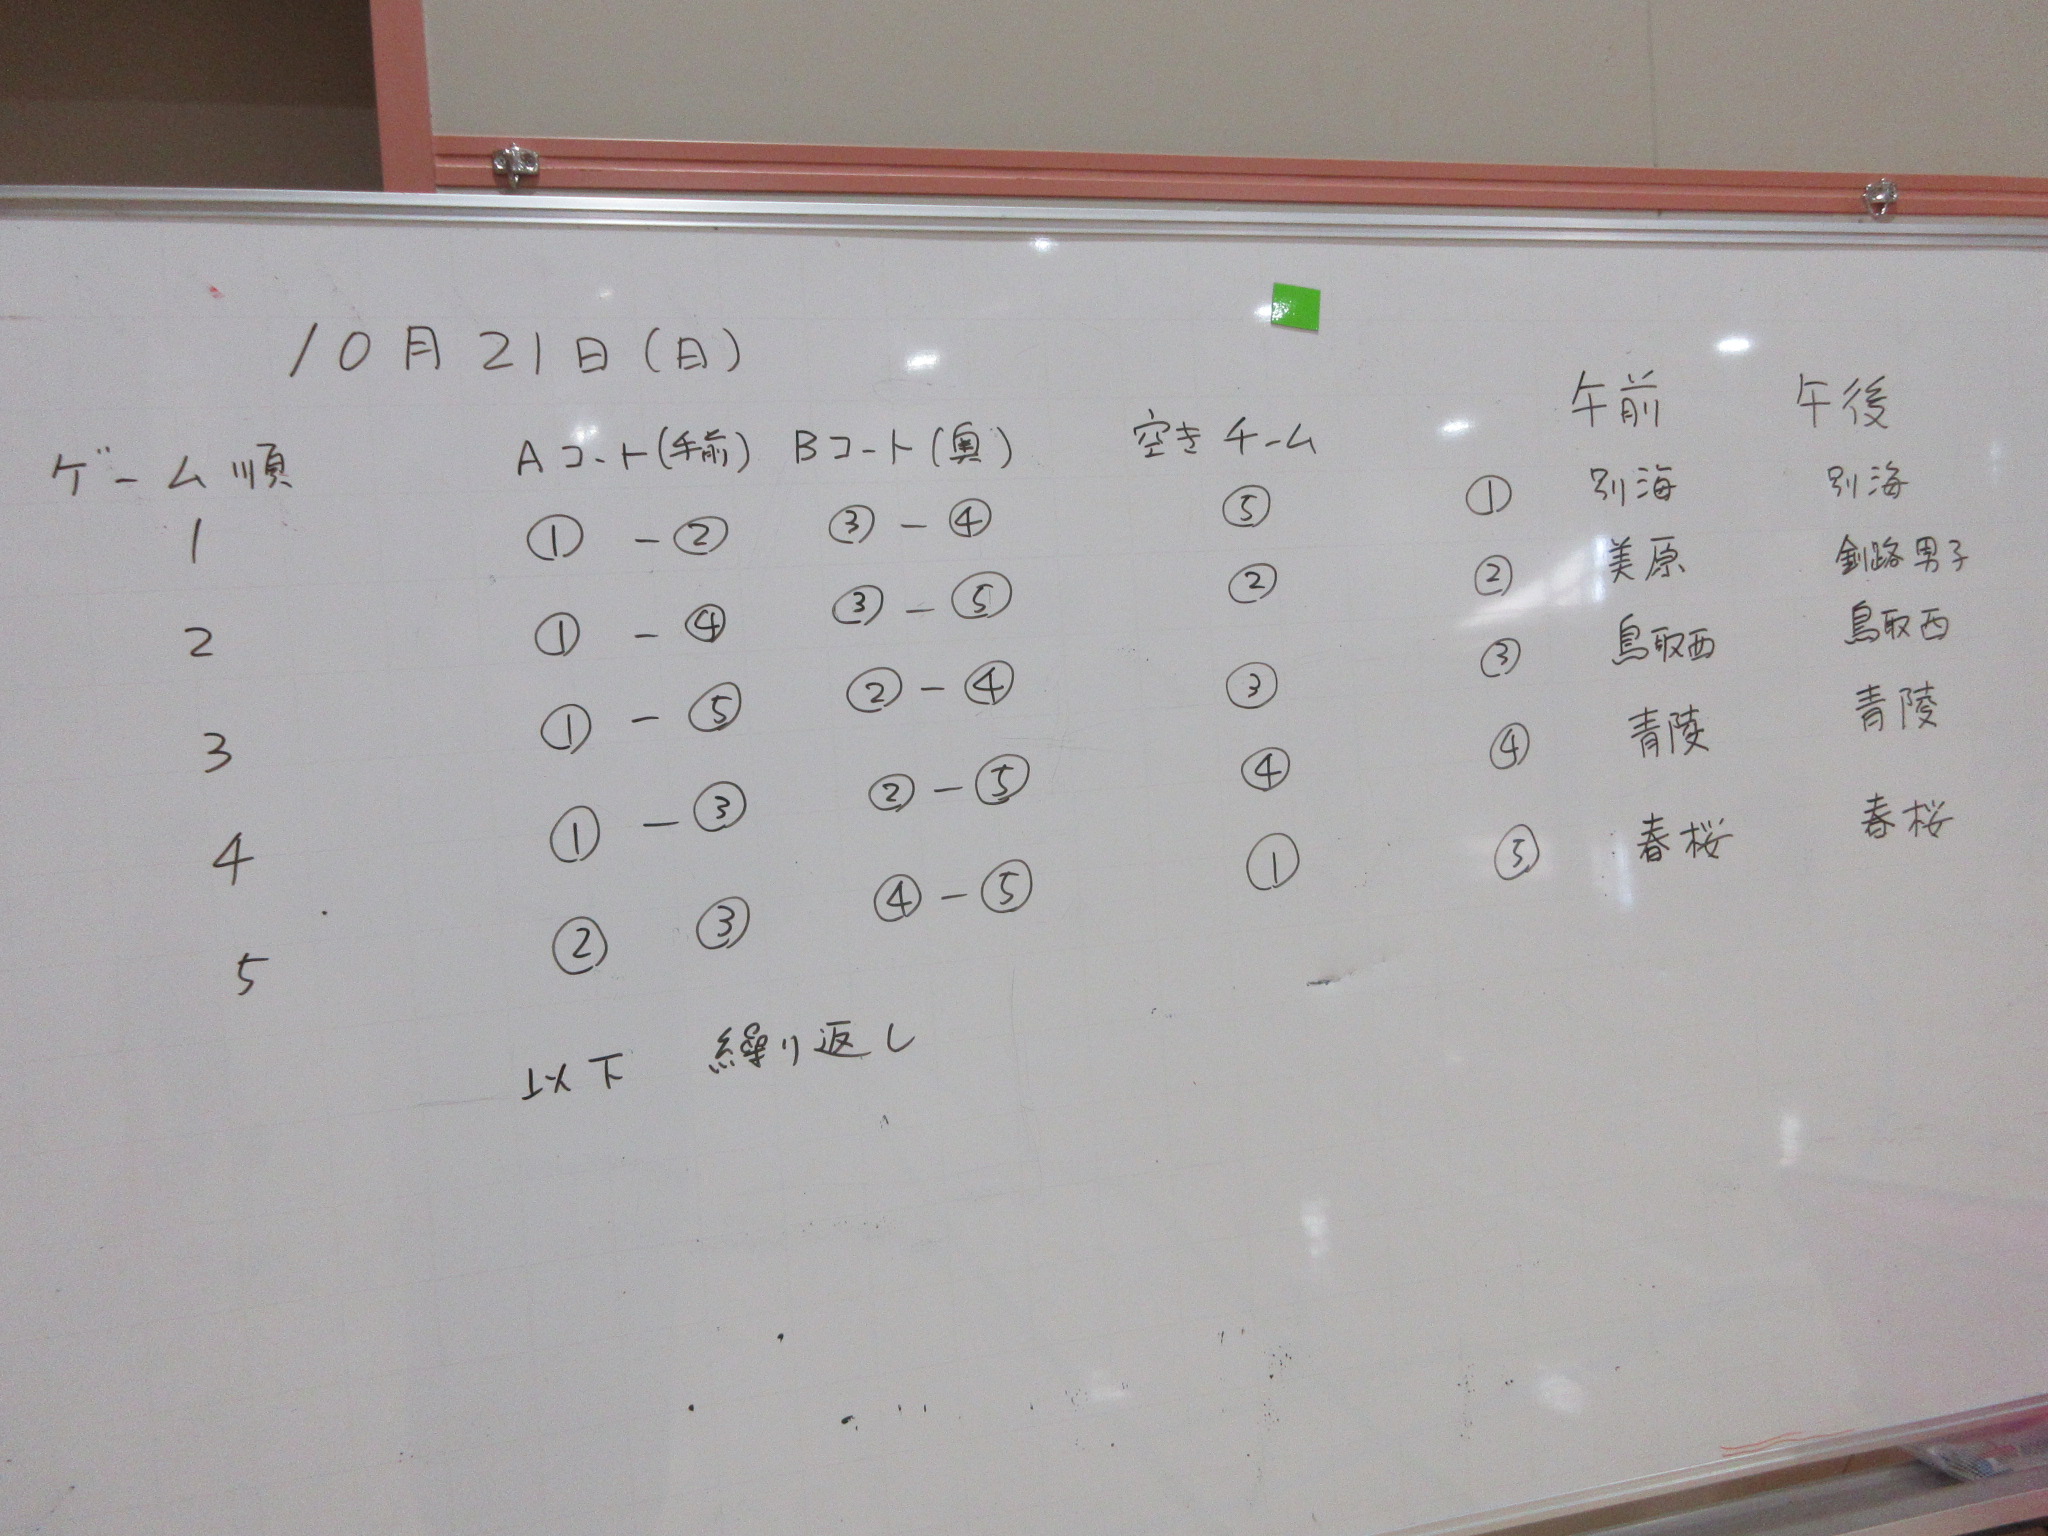 10月21日(日)
午前 午後
ゲーム順 Aコート(手前) Bコート(奥) 空きチーム
1 ①-② ③-④ ⑤ ① 別海 別海
2 ①-④ ③-⑤ ② ② 美原 釧路男子
3 ①-⑤ ②-④ ③ ③ 鳥取西 鳥取西
4 ①-③ ②-⑤ ④ ④ 青陵 青陵
5 ② ③ ④-⑤ ① ⑤ 春桜 春桜
以下 繰り返し